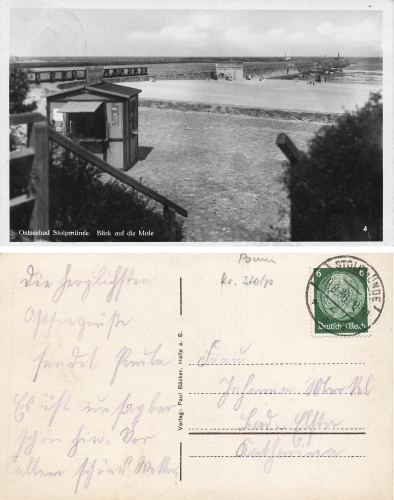 Ostseebad Stolpmünde. Blick auf die Mole
Die herzlichsten
Ostseegrüße
sendet Paula
Es ist unsagbar
schön hier. Vor
allem schönes Wetter
Pomm
Kr. Stolp
STOLPMÜNDE
6 6
Deutsches Reich
Verlag: Paul Bäcker, Halle a. S.
Frau
Johanna Merkel
Bad Elster